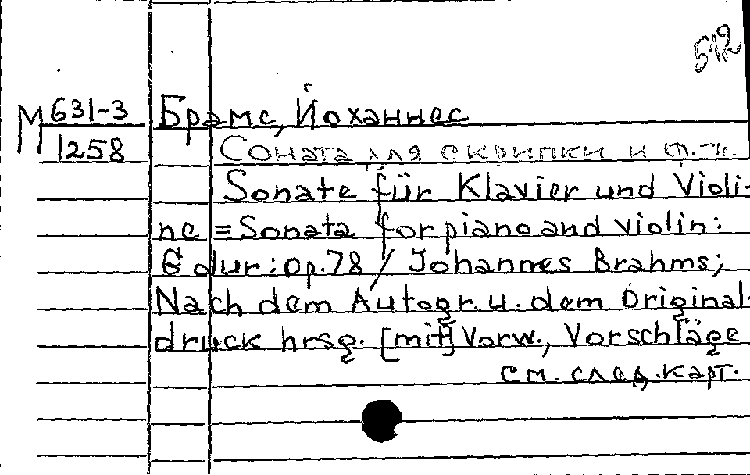 542
М 631-3
1258
Брамс, Йоханнес
Соната для скрипки и ф.-п.
Sonate für Klavier und Violi-
ne = Sonata for piano and violin:
G dur: op.78 / Johannes Brahms;
Nach dem Autogr. u. dem Original-
druck hrsg. [mit] Vorw., Vorschläge
см. след. карт.